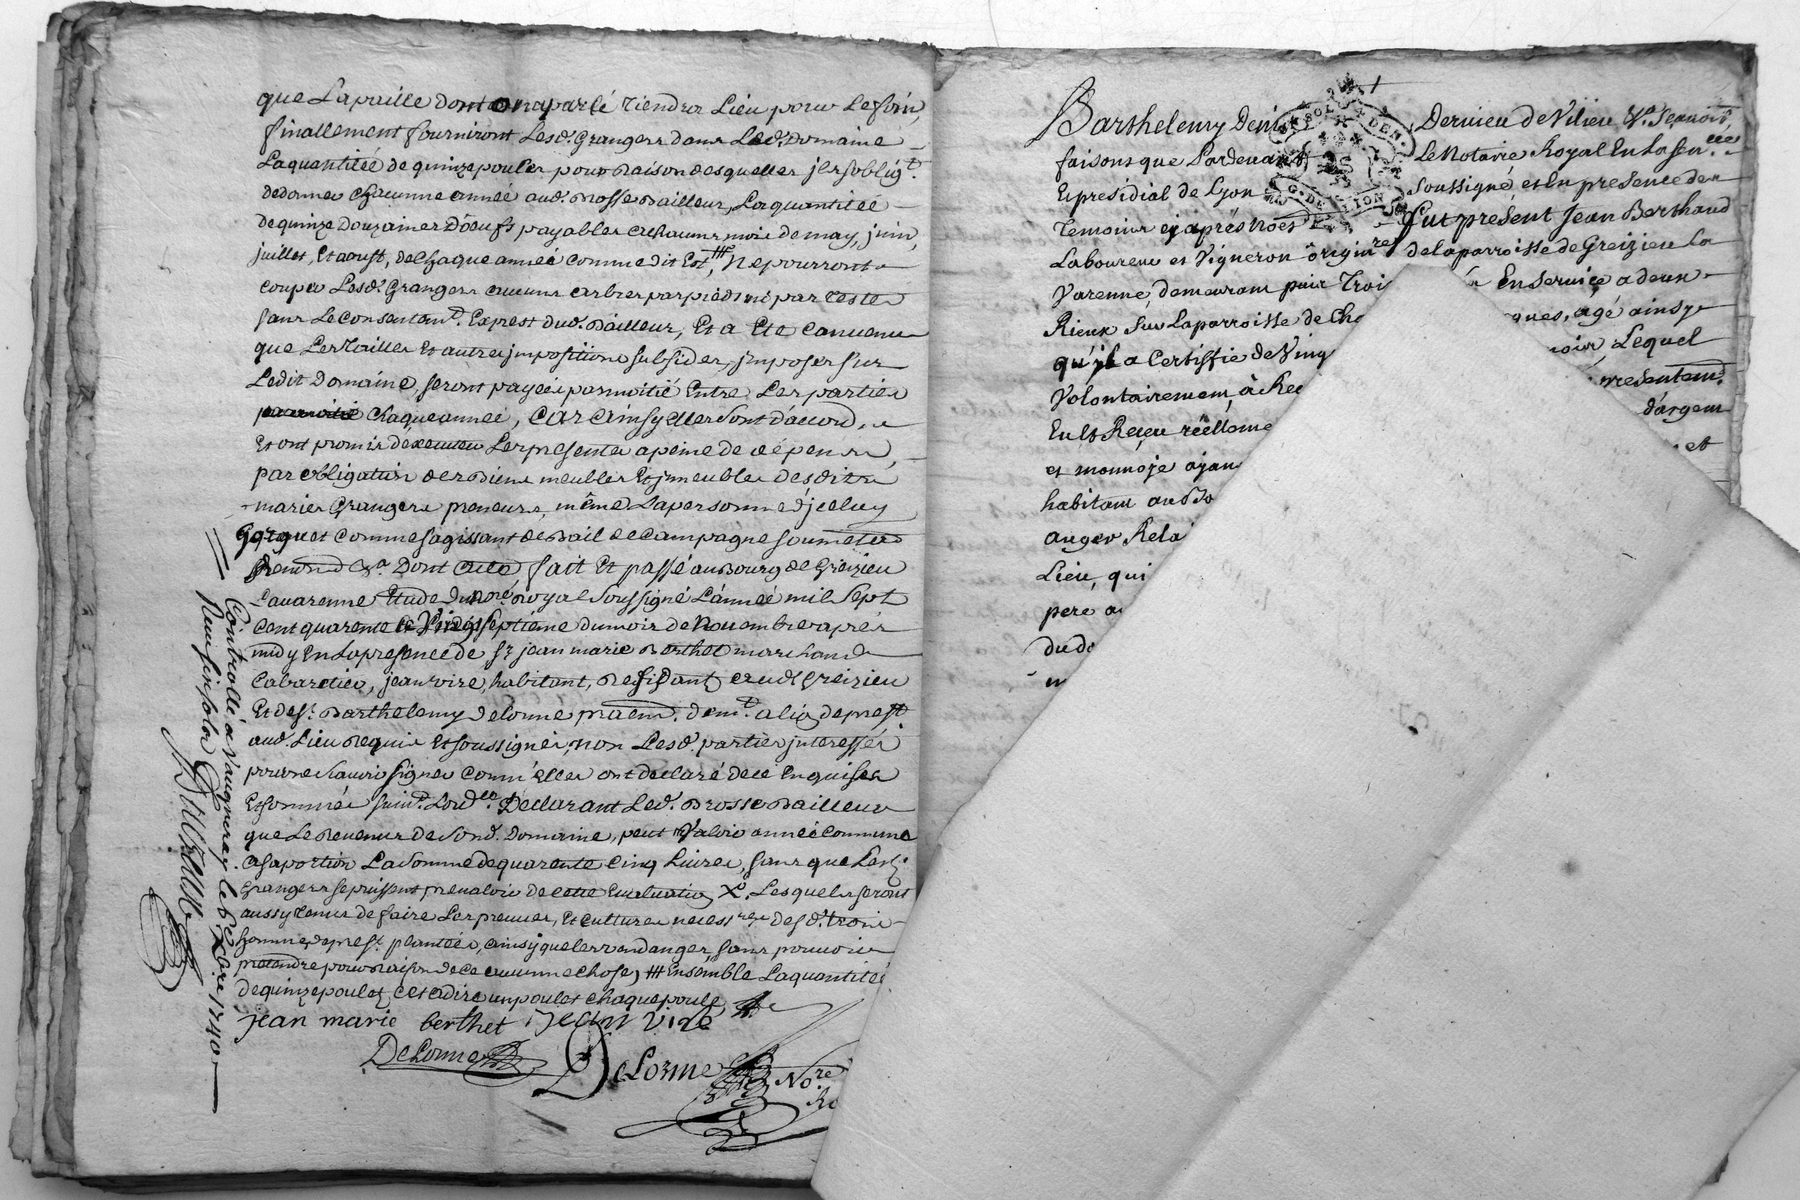 que La paille dont on a parlé tiendra Lieu pour Le foin,
finallement fourniront Lesd. Grangers dans Led. Domaine
La quantitéé de quinze poules pour Raison desquelles jls soblig.t
de donner Chacunne année aud. Brosse Bailleur, La quantitéé
de quinze Douzaines D'oeufs payables a chacuns mois de may, juin,
juillet, Et aoust, de chaque année comme dit Est, # Ne pourront
couper Lesd. Grangers aucuns arbres par pied ni par teste
sans Le Consentem.t Exprest dud. Bailleur, Et a Ete Convenu
que Les tailles Et autres jmpositions subsides, jmposer sur
Ledit Domaine, seront payéés par moitié Entre Les parties
par moitié chaque année, CAR Ainsy Elles sont d'accord,
Et ont promis d'executer Les presentes a peine de dépens,
par obligation de ses Biens meubles Et jmmeubles Desdits
mariés Grangers preneurs, même La personne d'jceluy
Gorguet comme s'agissant de Bail de Campagne soumettre
Renond &.a Dont Acte, fait Et passé au Bourg de Greizieu
Lavarenne Etude du no.re Royal Soussigné L'année mil Sept
Cent quarente Le Vingt Septiéme du mois de Novembre aprés
midy En La presence de S.r jean marie Berthet marchand
Cabaretier, jean vire, habitant, Residants aud. Greizieu
Et de S.r Barthelemy Delorme
aud. Lieu Requis Et soussignés, non Lesd. parties jnteressés
pour ne sçavoir signer Comm'Elles ont declaré de ce Enquises
Et sommés Declarant Led. Brosse Bailleur
que Le Revenus de Sond. Domaine, peut Valoir année Commune
a sa portion La somme de quarente cinq Livres, sans que Lesd.
Grangers se puissent prevaloir de cette Evaluation X. Lesquels seront
aussy tenus de faire Les preuves, Et cultures necess.res desd. trois
hommées plantéé, ainsy que les vandanges, sans pouvoir
pretendre pour Raison de ce aucunne chose, # Ensemble La quantitéé
de quinze poulets, c'est a dire un poulet chaque poule
jean marie berthet Jean Vire
Delorme
DeLorme No.re
Ro
Controllé a Vaugneray le 6 Xbre 1740
Neuf sols
Barthelemy Denis Dervieu de Vilieu
faisons que Pardevant Le Notaire Royal En La Sen.cée
Et presidial de Lyon Soussigné et En presence des
Temoins cy aprés Només Fut présent Jean Berthaud
Laboureur et Vigneron origin.re de la parroisse de Greizieu La
Varenne, demeurant En Service a deux
Rieux Sur La parroisse de agé ainsy
qu'jl a Certiffié de Ving Lequel
Volontairement, à presentem.t
Eu Et Reçeu réëlleme d'argent
et monnoje ayan et
habitant au Bo
auger
Lieu, qui
pere
du
G. DE LION